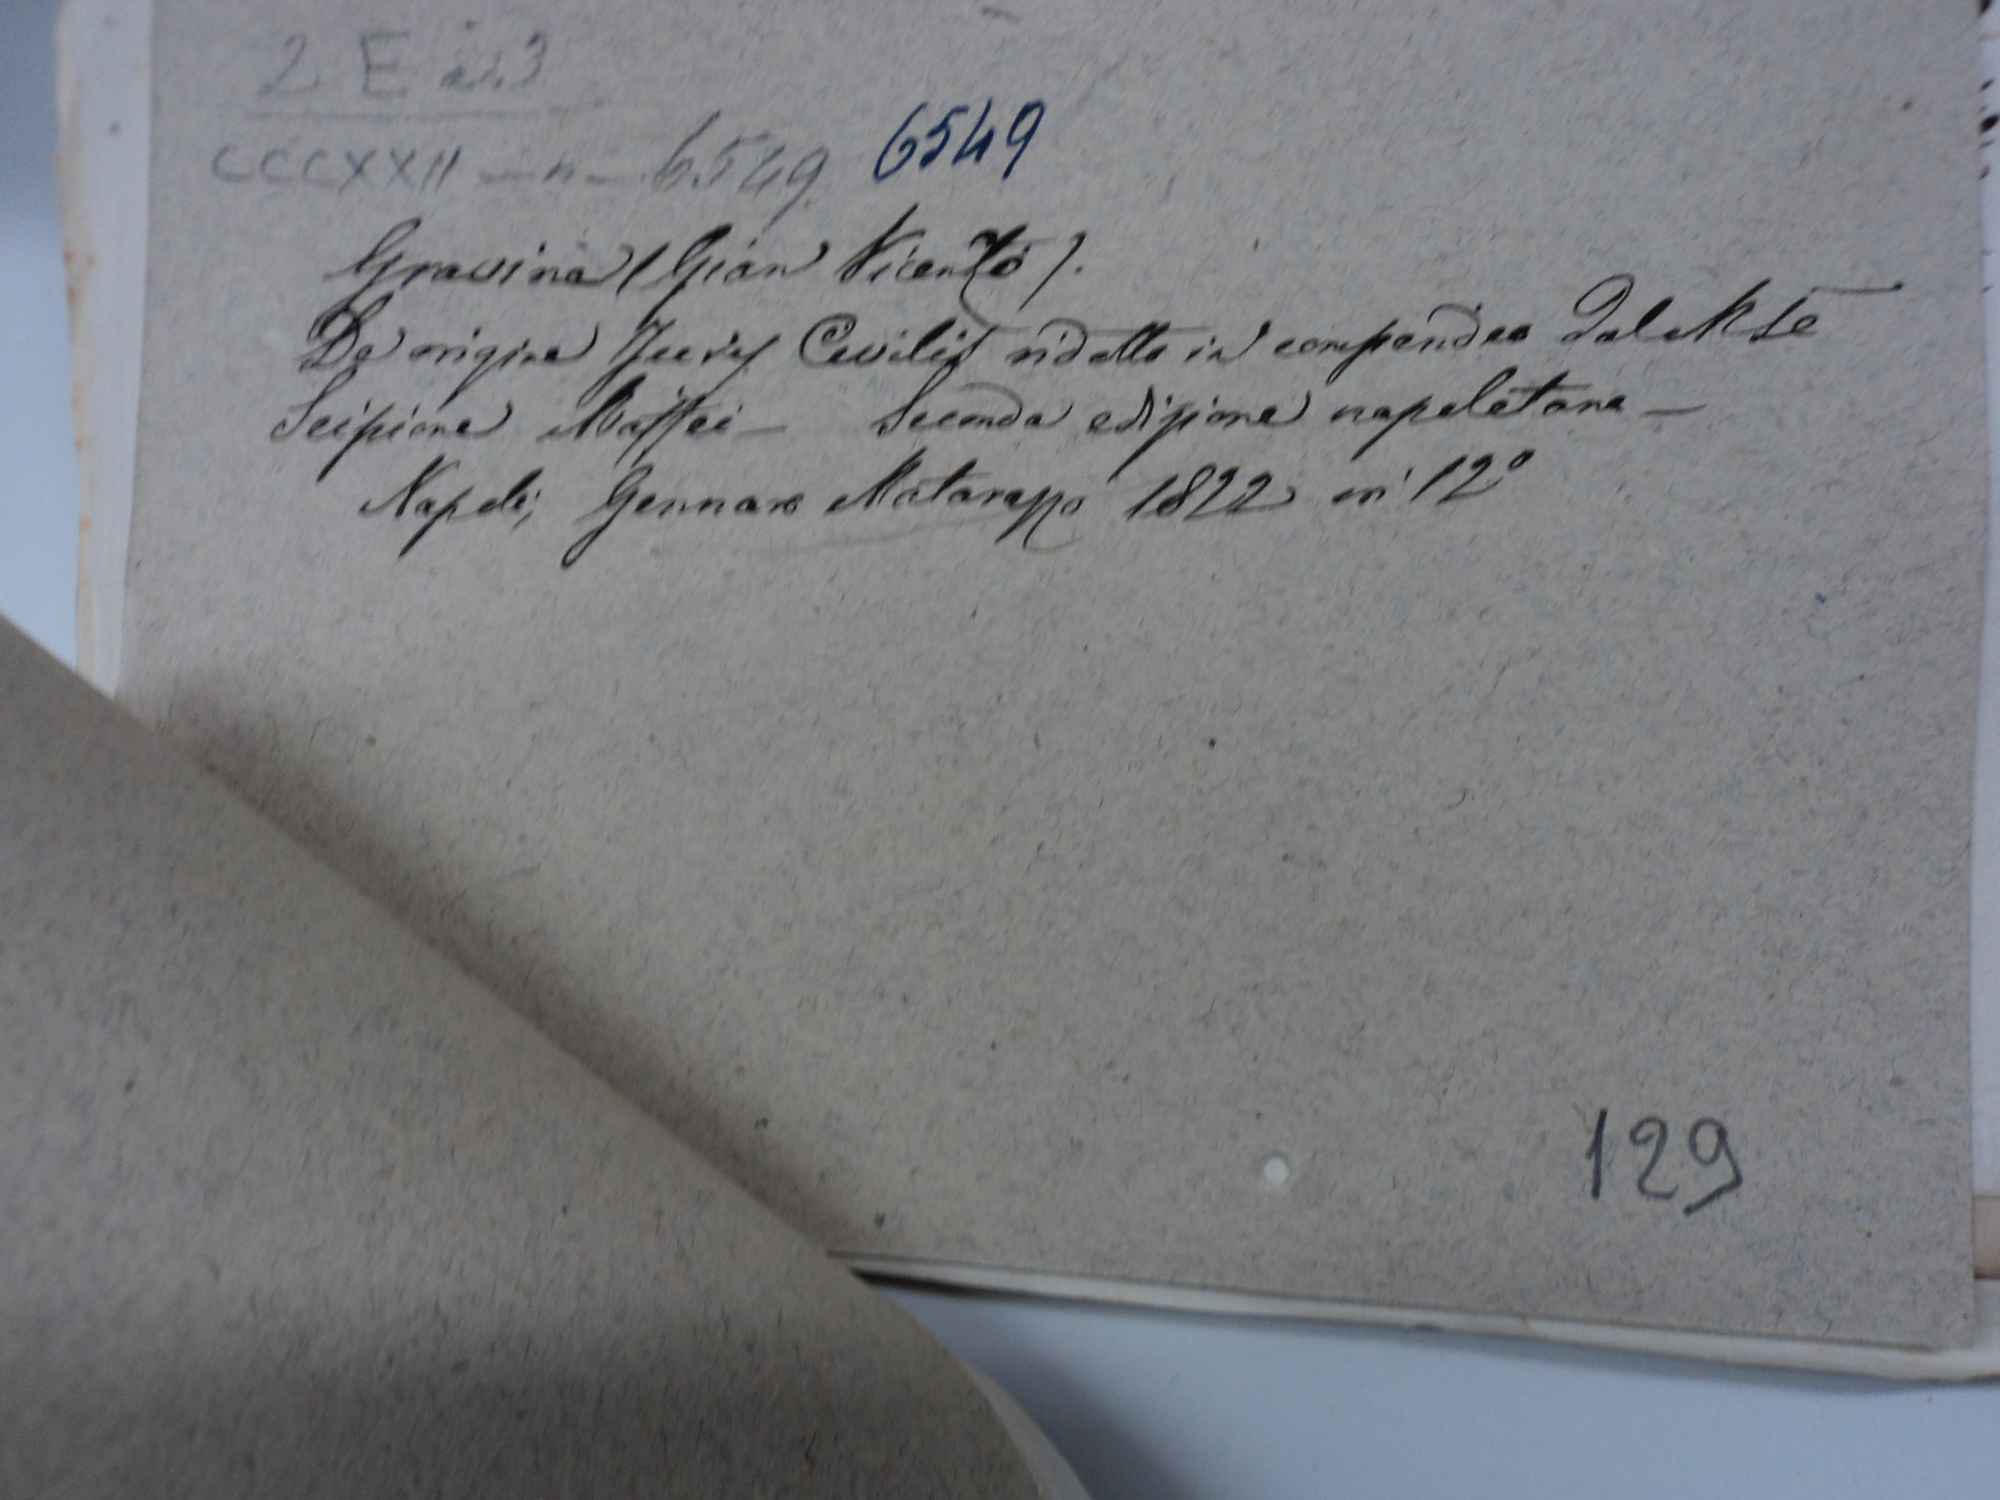 2 E
CCCXXII — n — 6549 6549
Gravina (Gian Vicenzo).
De origine Juris Civilis ridotto in compendio dal
Scipione Maffei — Seconda edizione napoletana —
Napoli, Gennaro Matarazzo 1822 in 12º
129